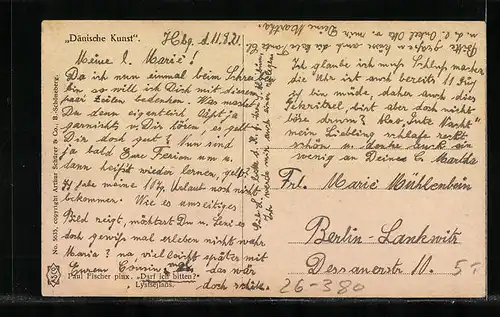 „Dänische Kunst".
Hbg. d. 11.8.21.
Meine l. Marie!
Da ich nun einmal beim Schreiben
bin so will ich Dich mit diesen
paar Zeilen bedenken. Was machst
Du denn eigentlich? Läßt ja
garnichts v. Dir hören, es geht
Dir doch gut? Nun sind
ja bald Eure Ferien um u.
dann heißt wieder lernen, gelt?
Ich habe meine Urlaub noch nicht
bekommen. Wie es umseitiges
Bild zeigt, möchtest Du u. Leni es
doch gewiss mal erleben nicht wahr
Maria? na vielleicht später mit
Eurem Cousin, das wär
doch schön.
Ich glaube ich muß Schluß machen
die Uhr ist auch bereits 11
ich bin müde, daher auch dies
Gekritzel, bist aber doch nicht
böse drum? Also „Gute Nacht"
mein Liebling schlafe recht
schön u. denke auch ein
wenig an Deine l. Martha
Bitte grüßen
Deine Martha.
Frl. Marie Mühlenbein
Berlin-Lankwitz
Dessauerstr. 10.
26-380
5-
No. 5035, copyright Arthur Schürer & Co., B.-Schöneberg.
Paul Fischer pinx. „Darf ich bitten?"